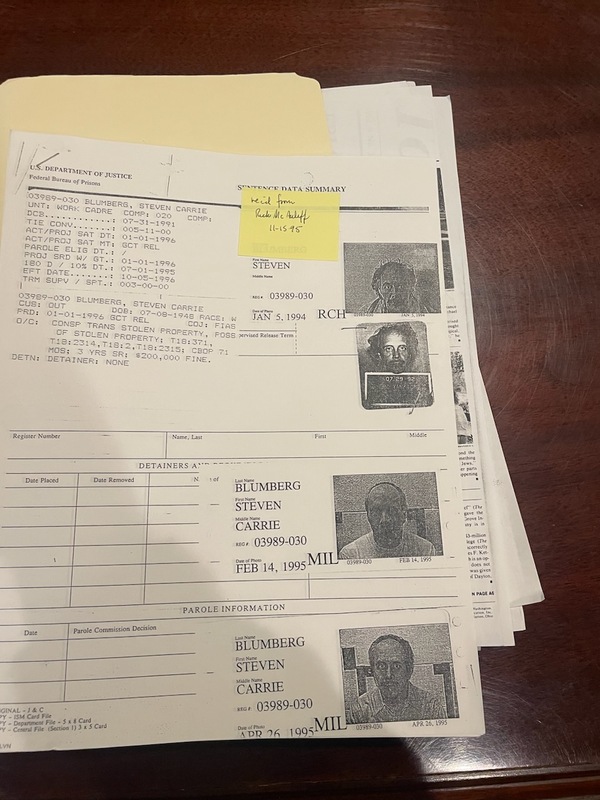 U.S. DEPARTMENT OF JUSTICE
Federal Bureau of Prisons
SENTENCE DATA SUMMARY
03989-030 BLUMBERG, STEVEN CARRIE
UNT: WORK CADRE COMP: 020 COMP:
DCB..........: 07-31-1991
TIE CONV.....: 005-11-00
ACT/PROJ SAT DT: 01-01-1996
ACT/PROJ SAT MT: GCT REL
PAROLE ELIG DT.: /
PROJ SRD W/ GT.: 01-01-1996
180 D / 10% DT.: 07-01-1995
EFT DATE.......: 10-05-1996
TRM SUPV / SPT.: 003-00-00
from
11-15-95
First Name
STEVEN
Middle Name
REG # 03989-030
Date of Photo
JAN 5, 1994 RCH
JAN 3, 1994
03989-030 BLUMBERG, STEVEN CARRIE
CUS: OUT DOB: 07-08-1948 RACE: W
PRD: 01-01-1996 GCT REL COJ: FIAS
O/C: CONSP TRANS STOLEN PROPERTY, POSS
OF STOLEN PROPERTY; T18:371,
T18:2314,T18:2,T18:2315; CBOP T1
MOS: 3 YRS SR; $200,000 FINE.
DETN: DETAINER: NONE
pervised Release Term
07 29 92
Register Number Name, Last First Middle
DETAINERS AND
Date Placed Date Removed of
Last Name
BLUMBERG
First Name
STEVEN
Middle Name
CARRIE
REG # 03989-030
Date of Photo
FEB 14, 1995 MIL
03989-030 FEB 14, 1995
PAROLE INFORMATION
Date Parole Commission Decision
Last Name
BLUMBERG
First Name
STEVEN
Middle Name
CARRIE
REG # 03989-030
Date of Photo
APR 26, 1995 MIL
03989-030 APR 26, 1995
GINAL - J & C
PY - ISM Card File
PY - Department File - 5 x 8 Card
PY - Central File (Section 1) 3 x 5 Card
LVN
N PAGE A6